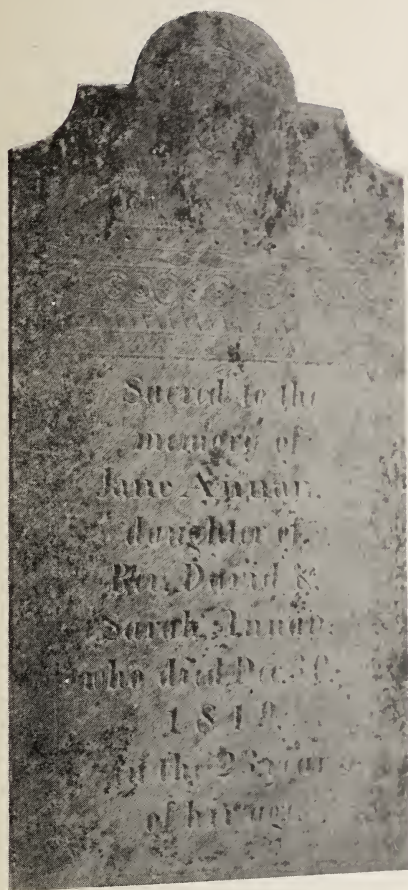 Sacred to the
memory of
Jane Annan,
daughter of
Rev. David &
Sarah Annan,
who died Dec.
in the year
of her age.